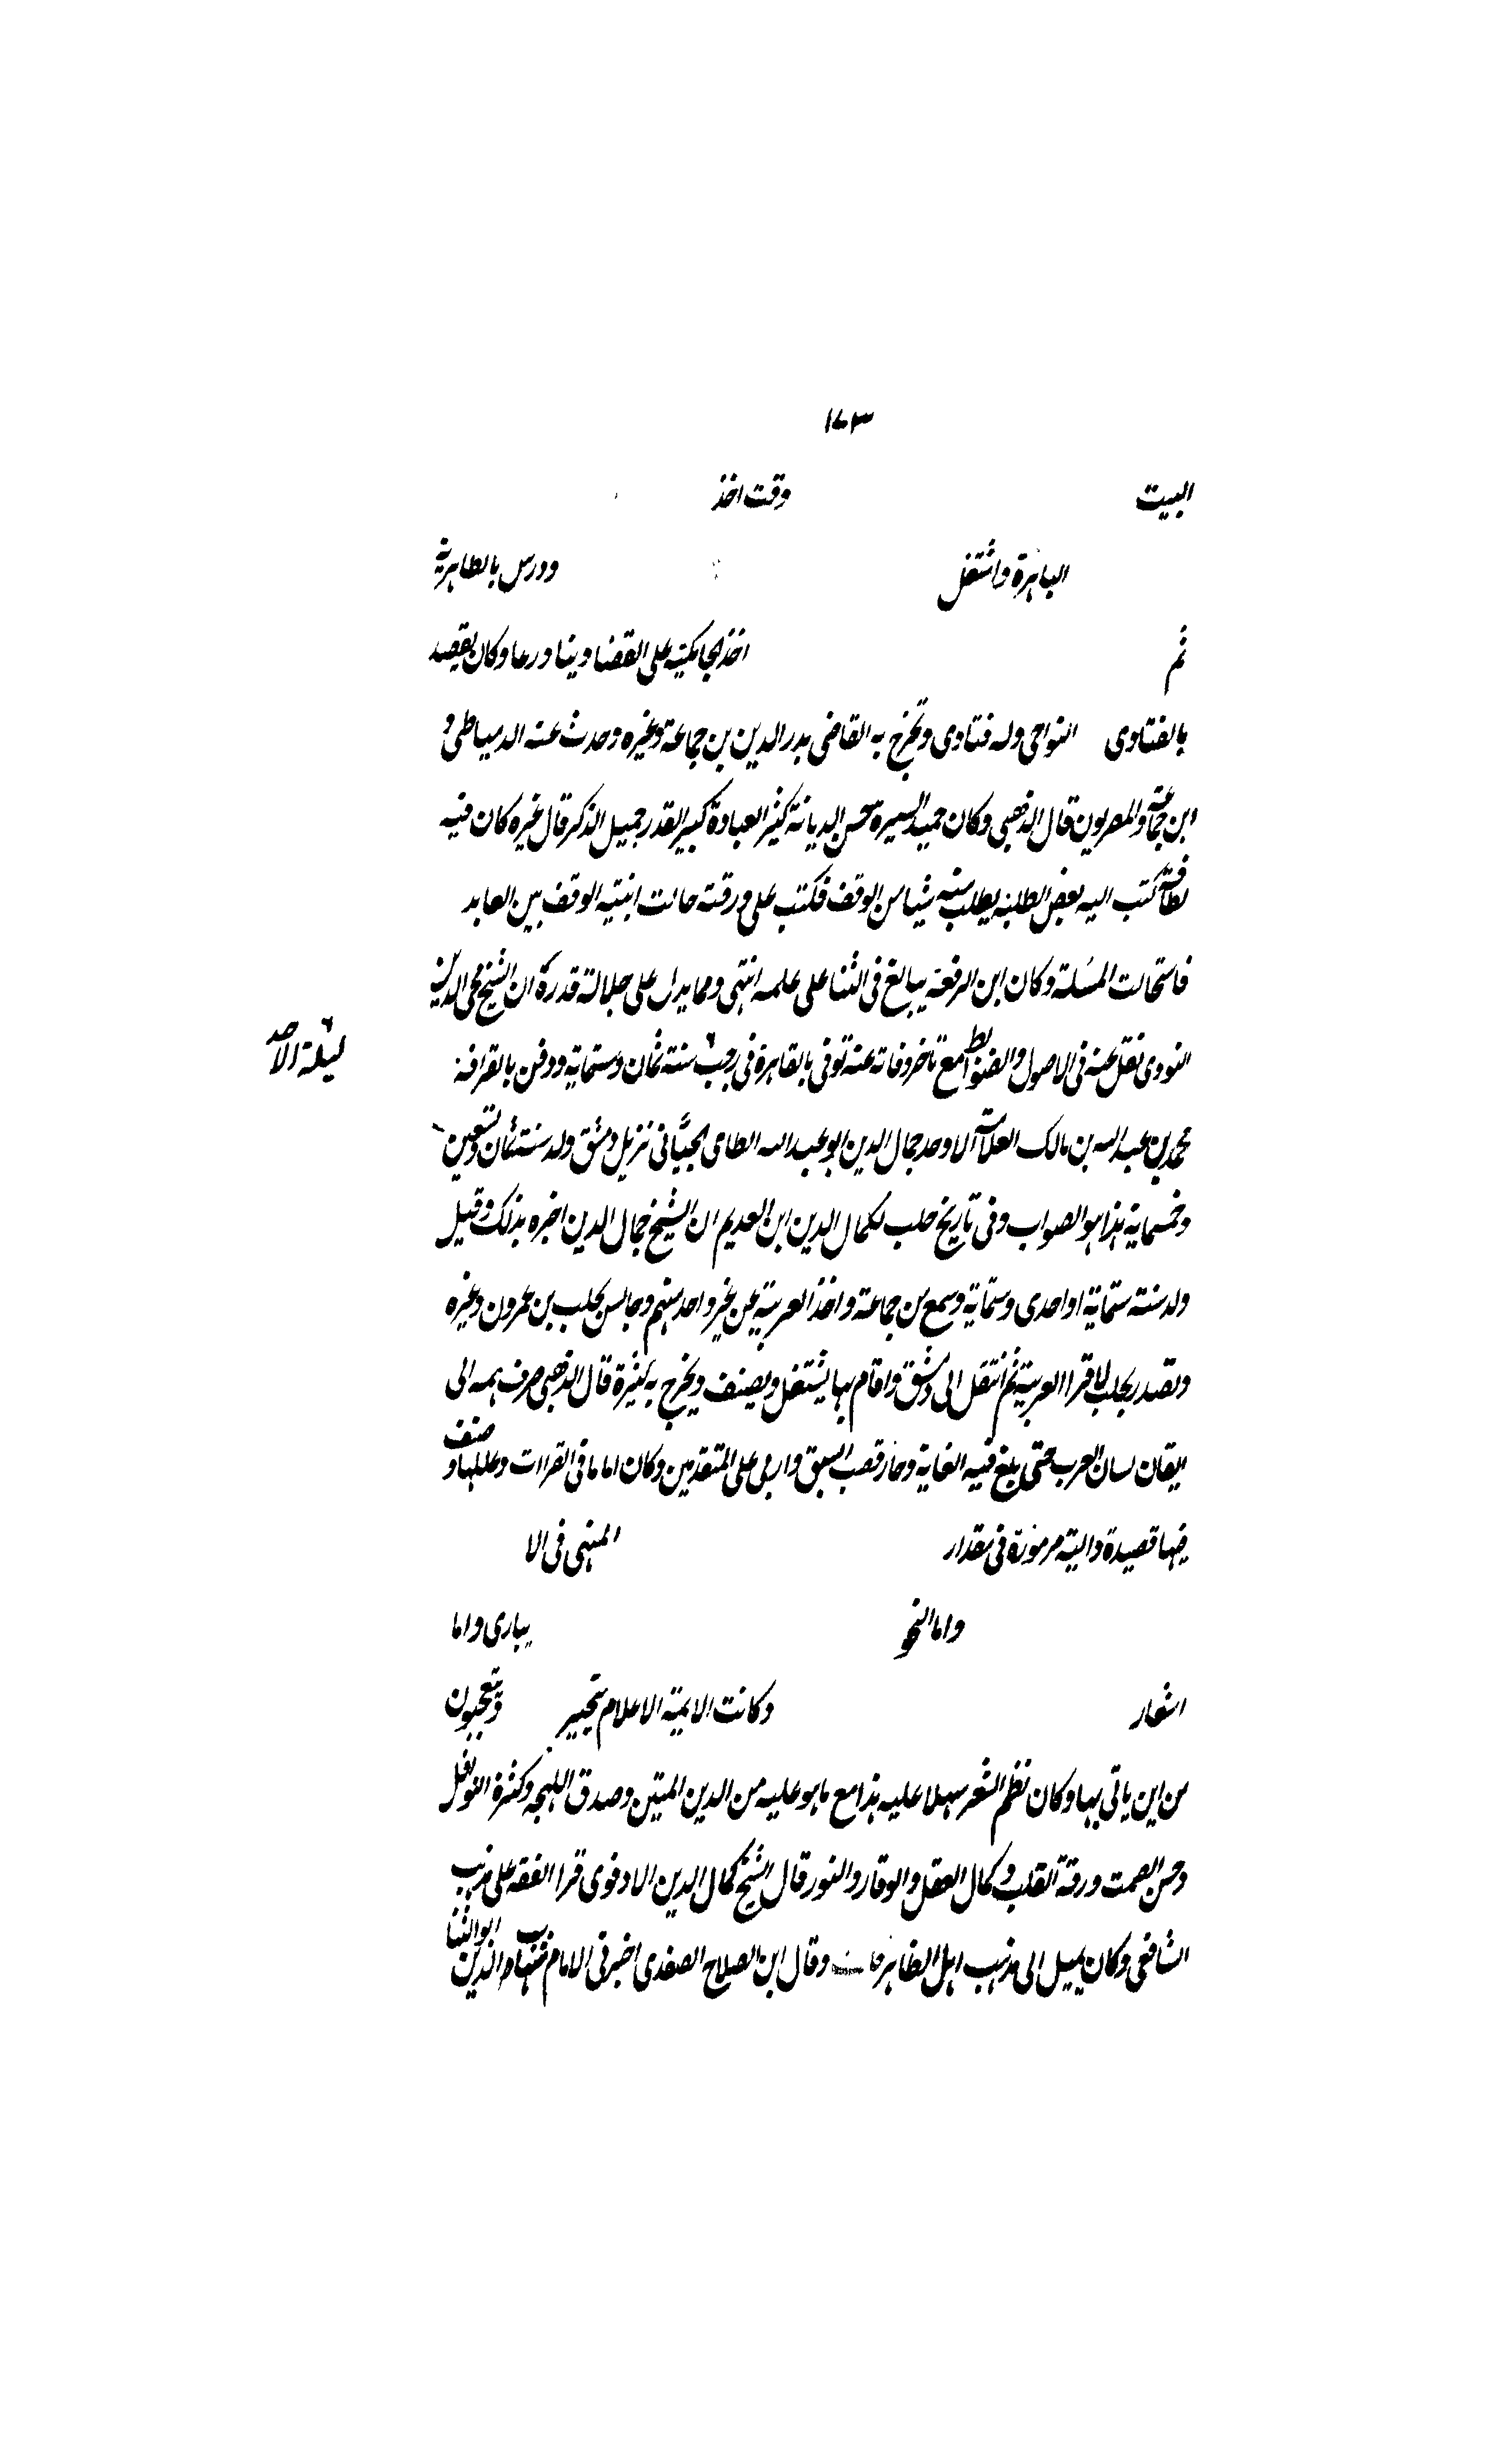 ١٧٣
البيت وقت اخذ
الباهرة واشتغل ودرس بالطاهرية
ثم اخذ لجامكية على القضا دينا ورعا وكان يقصد
بالفتاوى النواحى وله فتاوى وتخرج به القاضى بدر الدين بن جماعة وغيره وحدث عنه الدمياطى و
ابن جماعة والمصريون قال الذهبى وكان حميد السيرة حسن الديانة كثير العبادة كبير القدر جميل الذكر قال غيره كان فيه
لطافة كتب اليه بعض الطلبة يطلب منه شيا من الوقف فكتب على ورقته حالت ابنية الوقف بين العابد
فاستحالت المسئلة وكان ابن الرفعة يبالغ فى الثنا على علمه انتهى ومما يدل على جلالة قدره ان الشيخ محى الدين
النووى نقل عنه فى الاصول والضوابط مع تاخر وفاته عنه توفى بالقاهرة فى رجب سنة ثمان وستماية ودفن بالقرافة
ليلة الاحد
محمد بن عبد الله بن مالك العلامة الاوحد جمال الدين ابو عبد الله الطاى الجيانى نزيل دمشق ولد سنة ثمان وتسعين
وخمسماية هذا هو الصواب وفى تاريخ حلب لكمال الدين ابن العديم ان الشيخ جمال الدين اخبره بذلك وقيل
ولد سنة ستماية او احدى وستماية وسمع من جماعة واخذ العربية عن غير واحد منهم وجالس بحلب بن عمرون وغيره
وتصدر بحلب لاقرا العربية ثم انتقل الى دمشق واقام بها يشتغل ويصنف ويخرج به كثيرة قال الذهبى صرف همه الى
اتقان لسان العرب حتى بلغ فيه الغاية وحاز قصب السبق واربى على المتقدمين وكان اماما فى القراات وعللها وصنف
فيها قصيدة دالية مرموزة فى مقدار المنتهى فى الا
واما النحو يبارى واما
اشعار وكانت الايمة الاعلام تتحير ويتعجبون
من اين ياتى بها وكان نظم الشعر سهلا عليه هذا مع ما هو عليه من الدين المتين وصدق اللهجه وكثرة النوافل
وحسن الصمت ورقة القلب وكمال العقل والوقار والنور قال الشيخ كمال الدين الادفوى قرا الفقه على مذهب
الشافعى وكان يميل الى مذهب اهل الظاهر وقال ابن الصلاح الصفدى اخبرنى الامام شهاب الدين ابو الثنا